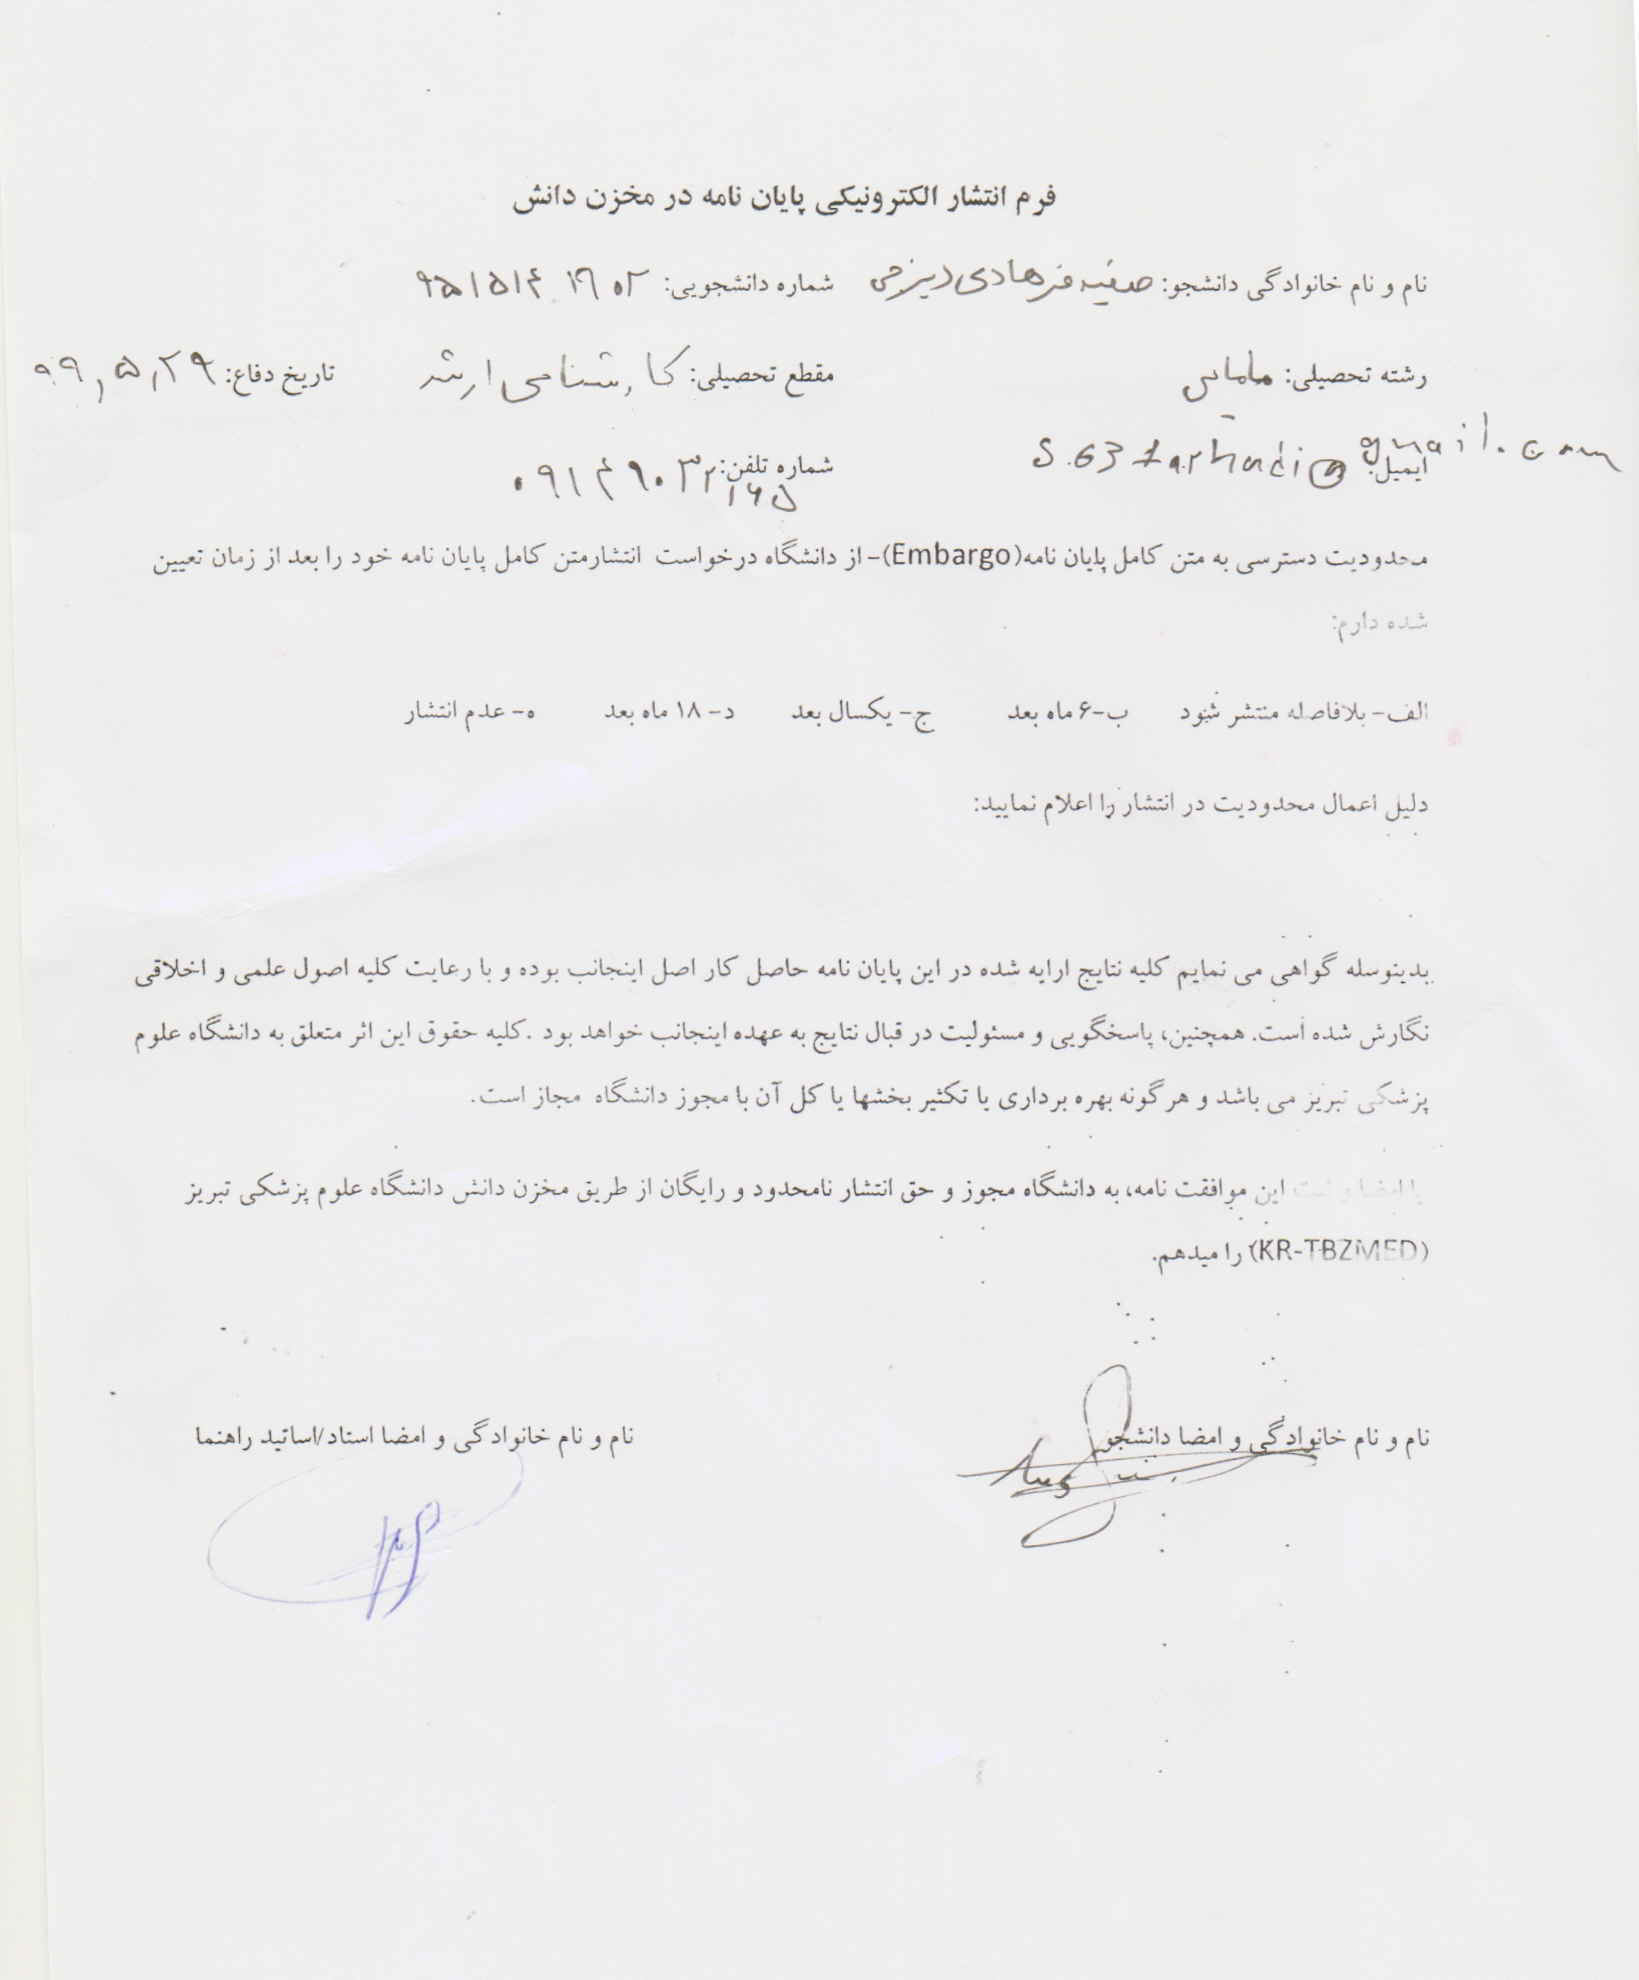 فرم انتشار الکترونیکی پایان نامه در مخزن دانش
نام و نام خانوادگی دانشجو: صفیه فرهادی دیزجی شماره دانشجویی:
رشته تحصیلی: مامایی مقطع تحصیلی: کارشناسی ارشد تاریخ دفاع: ۹۹,۵,۲۹
ایمیل: s.63farhadi@gmail.com شماره تلفن: ۰۹۱۴۹۰۳۲۱۶۵
محدودیت دسترسی به متن کامل پایان نامه(Embargo)- از دانشگاه درخواست انتشارمتن کامل پایان نامه خود را بعد از زمان تعیین
شده دارم:
الف- بلافاصله منتشر شود ب-۶ ماه بعد ج- یکسال بعد د- ۱۸ ماه بعد ه- عدم انتشار
دلیل اعمال محدودیت در انتشار را اعلام نمایید:
بدینوسله گواهی می نمایم کلیه نتایج ارایه شده در این پایان نامه حاصل کار اصل اینجانب بوده و با رعایت کلیه اصول علمی و اخلاقی
نگارش شده است. همچنین، پاسخگویی و مسئولیت در قبال نتایج به عهده اینجانب خواهد بود .کلیه حقوق این اثر متعلق به دانشگاه علوم
پزشکی تبریز می باشد و هرگونه بهره برداری یا تکثیر بخشها یا کل آن با مجوز دانشگاه مجاز است.
با امضا و ثبت این موافقت نامه، به دانشگاه مجوز و حق انتشار نامحدود و رایگان از طریق مخزن دانش دانشگاه علوم پزشکی تبریز
(KR-TBZMED) را میدهم.
نام و نام خانوادگی و امضا دانشجو نام و نام خانوادگی و امضا استاد/اساتید راهنما